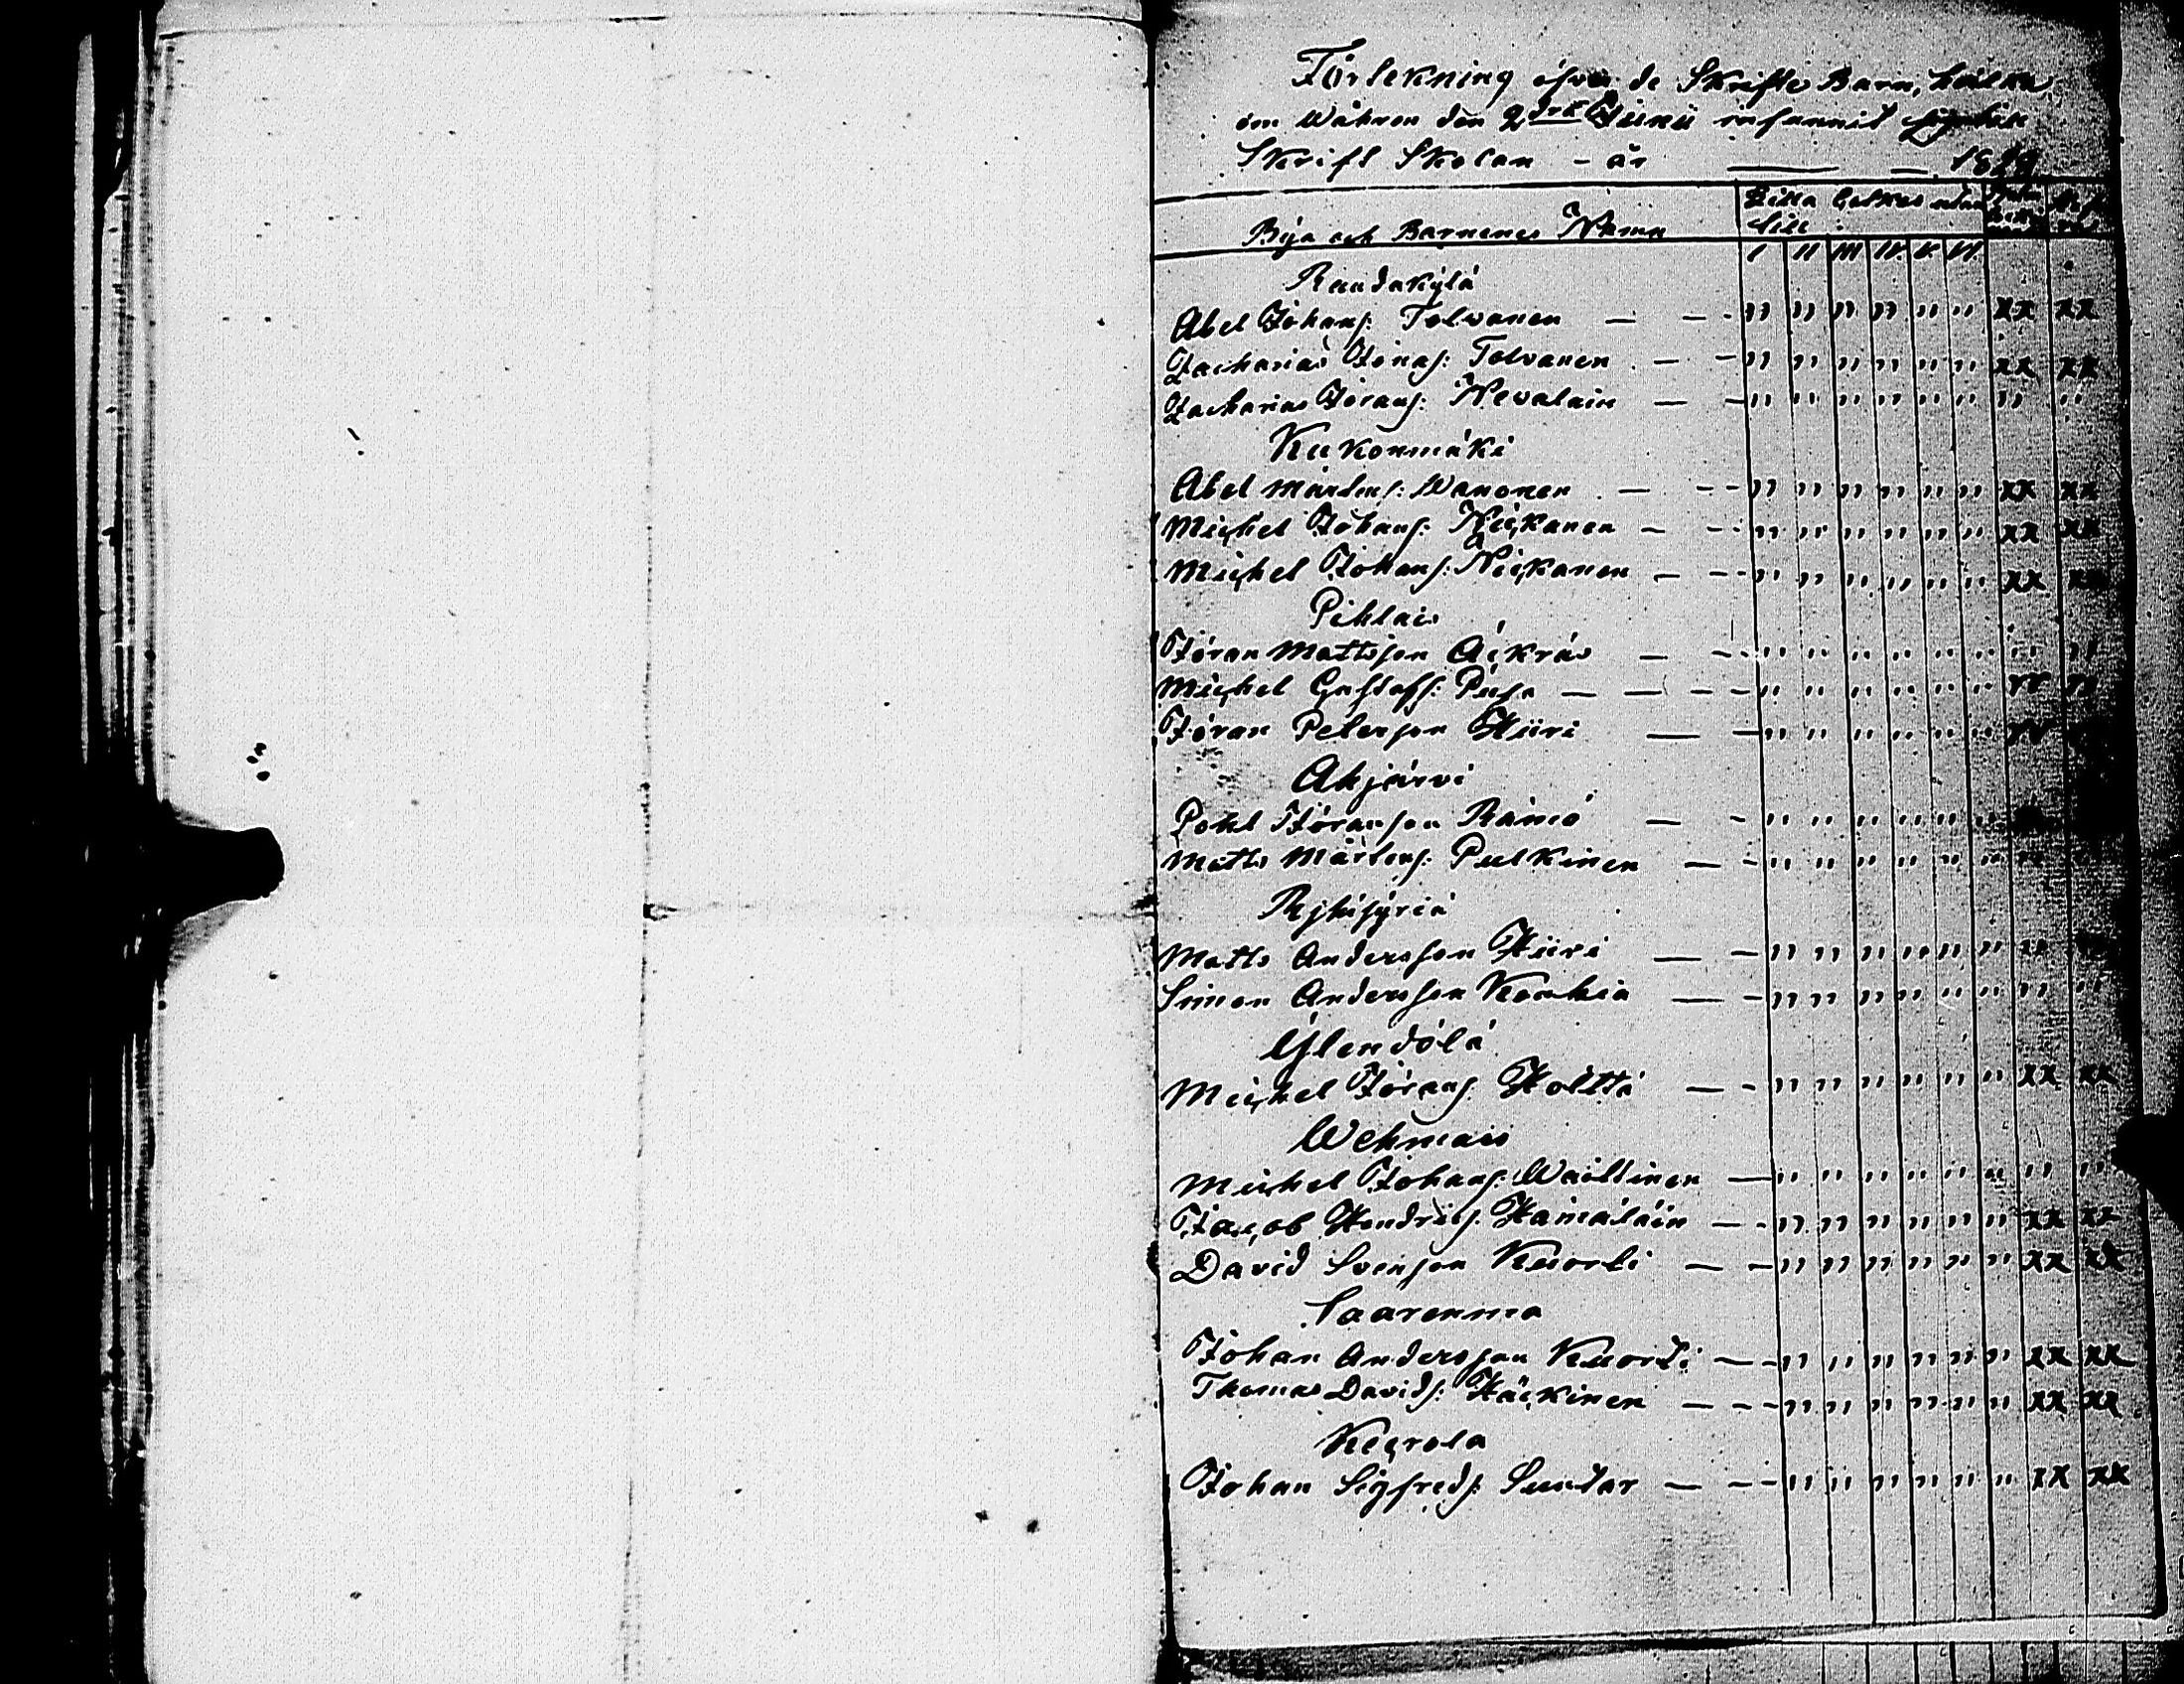 Förtekning öfver de Skrifte Barn, hvilka
om Våhren den 2dra Junii infunnit
Skrift Skolan - år — — 1829
Bya och Barnenes Namn
Läsa Bokes utan
till
I II III IV V VI
Randakylä
Abel Johans: Tolvanen — — - " " " " " " xx xx
Zacharias Jönas: Tolvanen — — " " " " " " xx xx
Zacharias Jörans: Nevalain — — " " " " " " " "
Kukonmäki
Abel Mårtens: Wanonen — - - " " " " " " xx xx
Michel Johans: Nickanen — - - " " " " " " xx xx
Michel Johans: Nickanen — - - " " " " " " xx xx
Pihlais
Jöran Mattsson Äckräs — — " " " " " " " "
Michel Gustafs: Pusa — — - — " " " " " " rr rr
Jöran Petersson Hiiri — — " " " " " " rr
Ahjärvi
Pohl Jöransson Rämö — — " " " " " "
Matts Mårtens: Pulkinen — — " " " " " "
Rjhisyriä
Matts Andersson Hiiri — — " " " " " " xx
Simon Andersson Kouhia — — " " " " " " " "
Ylendölä
Michel Jörans: Höltti — - " " " " " " xx xx
Wehmais
Michel Johans: Waittinen — " " " " " " " "
Jacob Hendrics: Hämäläin — - " " " " " " xx xx
David Svensson Kuorti — — " " " " " " xx xx
Saarenma
Johan Andersson Kuorti — - " " " " " " xx xx
Thomas Davids: Häckinen — - - " " " " " " xx xx
Kierola
Johan Sigfreds: Suutar — - - " " " " " " xx xx